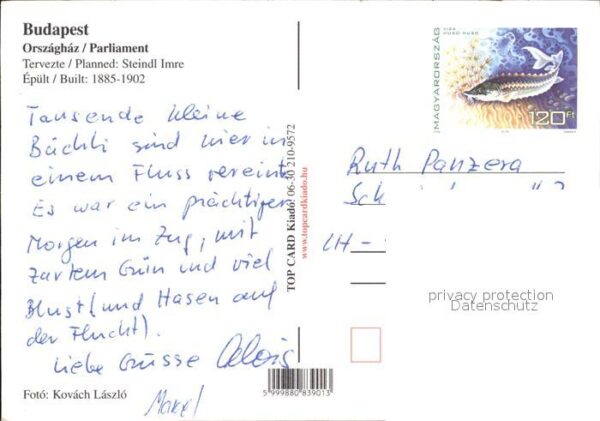 Budapest
Országház / Parliament
Tervezte / Planned: Steindl Imre
Épült / Built: 1885-1902
Tausende kleine
Bächli sind hier in
einem Fluss vereint.
Es war ein prächtiger
Morgen im Zug, mit
zartem Grün und viel
Blust (und Hasen auf
der Flucht).
Liebe Grüsse Alois
Marcel
Fotó: Kovách László
TOP CARD Kiadó 06-30 210-9572
www.topcardkiado.hu
5999880839013
MAGYARORSZÁG
VIZA
HUSO HUSO
120Ft
Ruth Panzera
Sch
CH -
privacy protection
Datenschutz